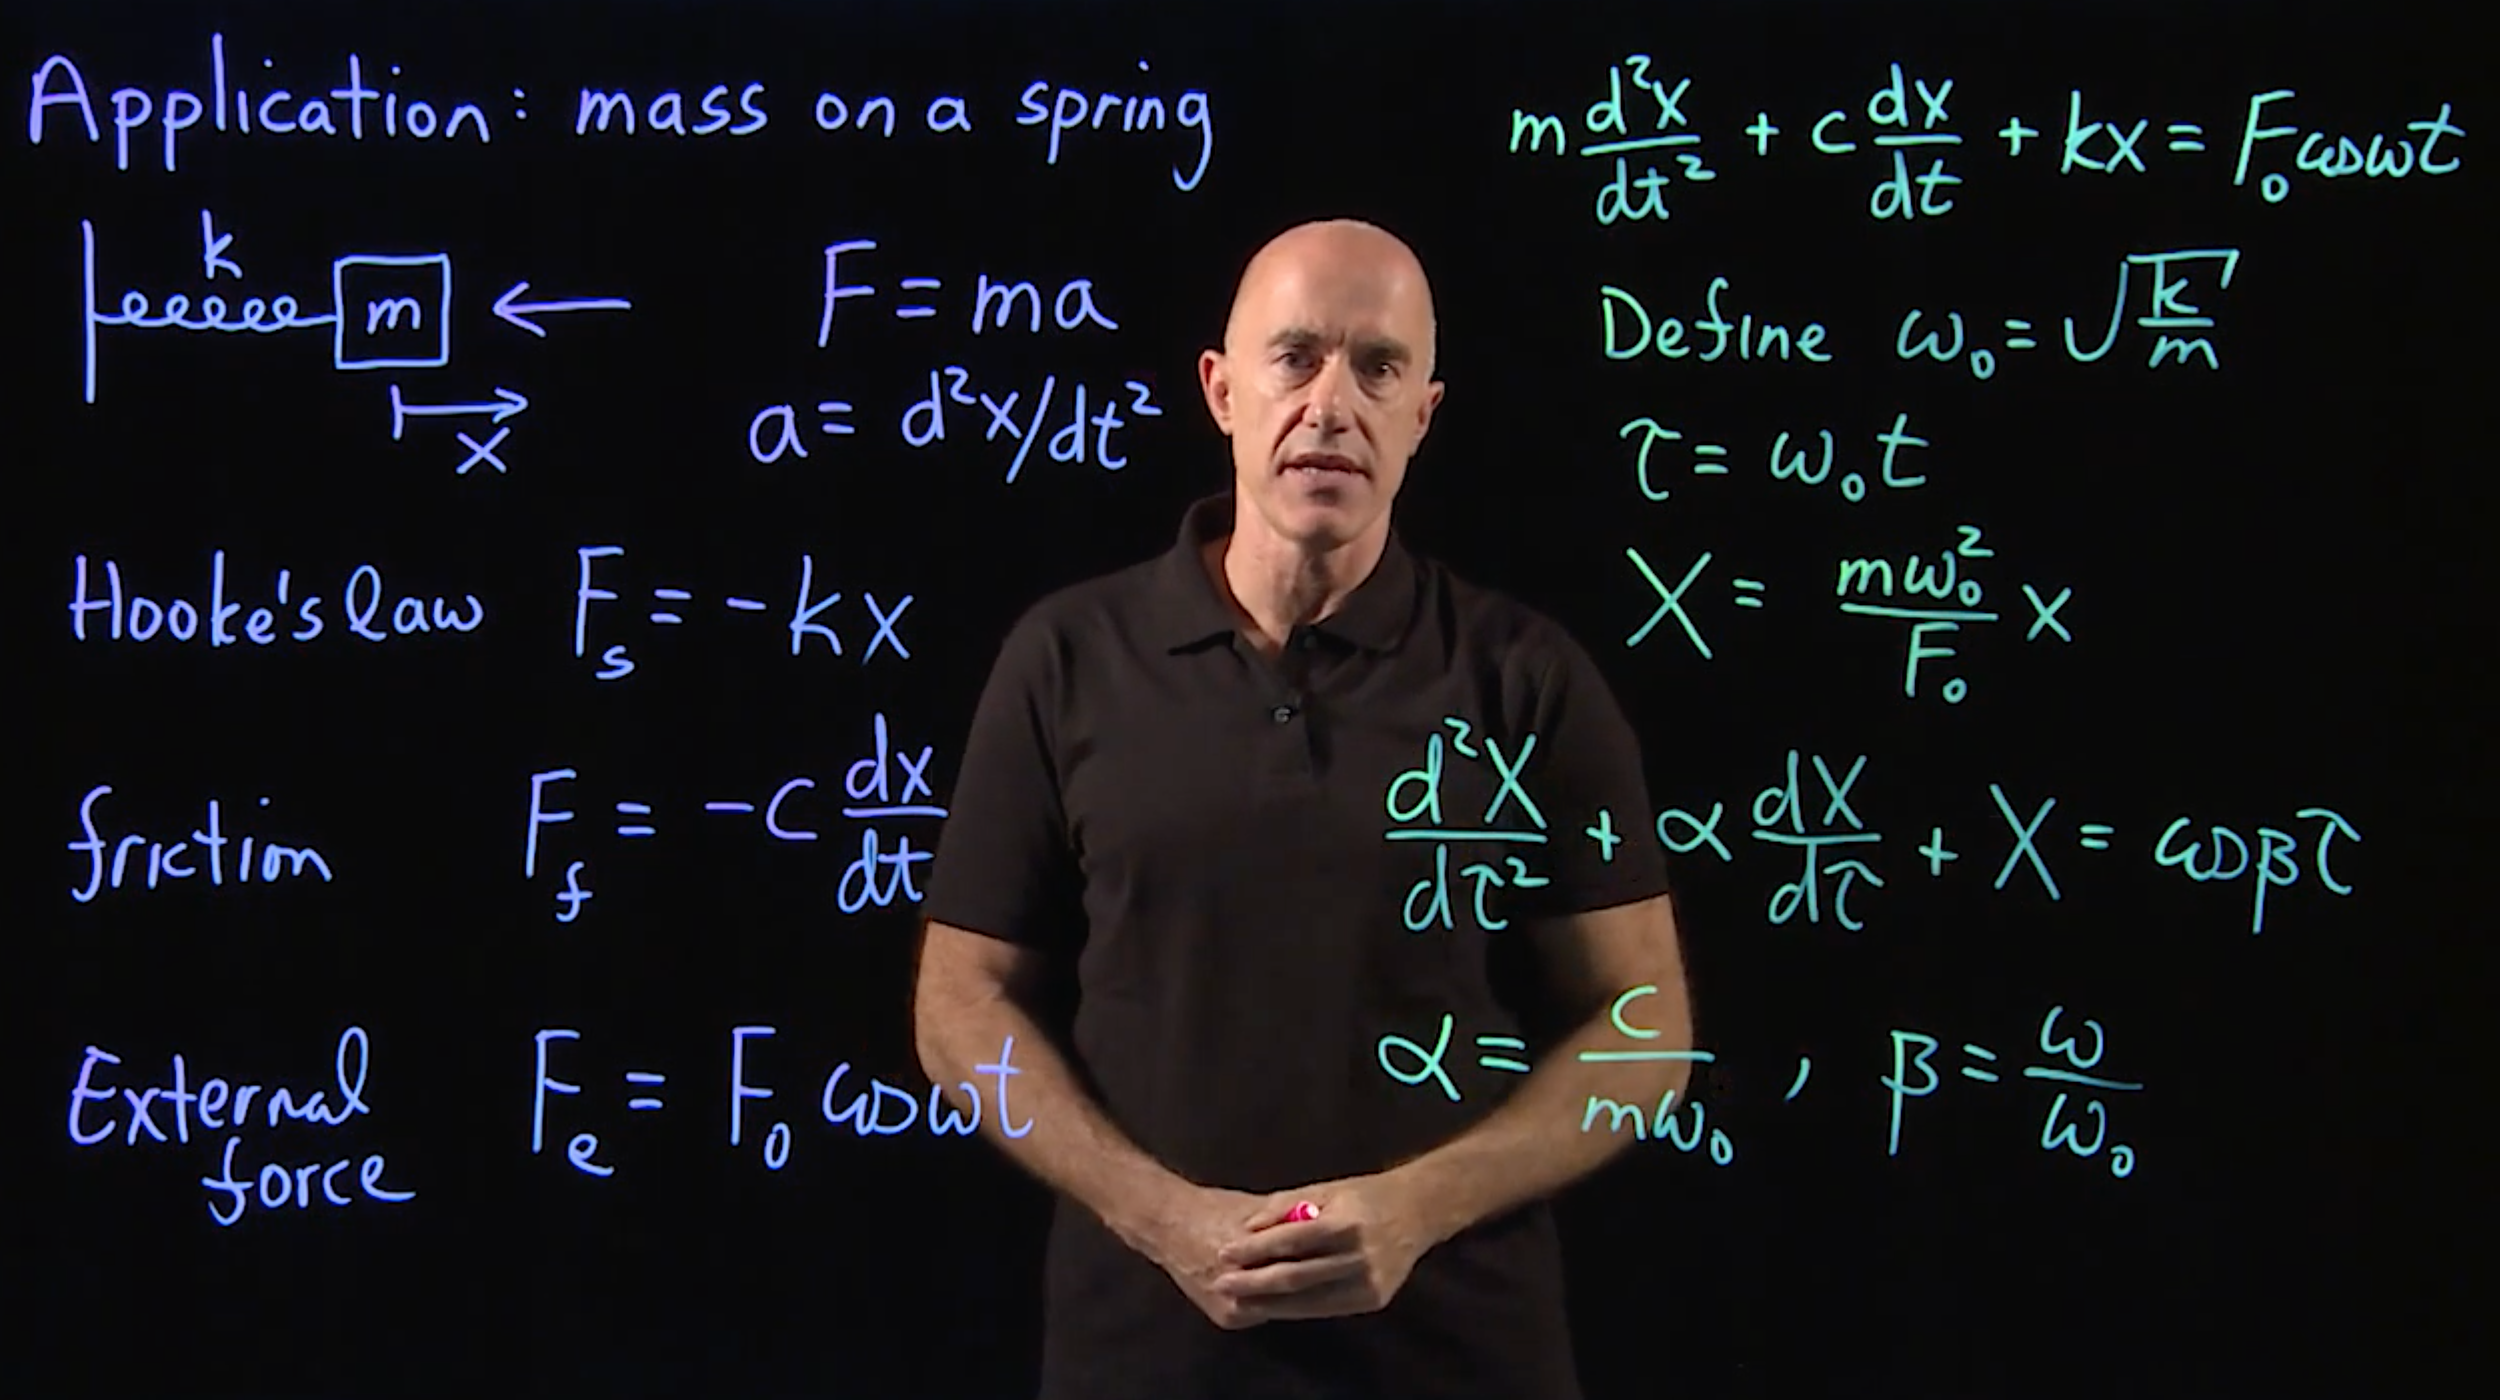 Application: mass on a spring
k
m
x
F = ma
a = d²x/dt²
Hooke's law F_s = -kx
friction F_f = -c dx/dt
External force F_e = F_0 cos ωt
m d²x/dt² + c dx/dt + kx = F_0 cos ωt
Define ω_0 = √(k/m)
τ = ω_0 t
X = mω_0²/F_0 x
d²X/dτ² + α dX/dτ + X = cos βτ
α = c/mω_0 , β = ω/ω_0